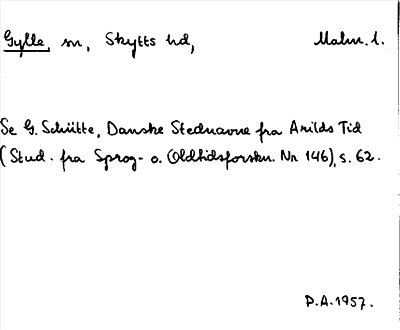 Gylle, sn, Skytts hd, Malm. l.
Se G. Schütte, Danske Stednavne fra Arilds Tid
(Stud. fra Sprog- o. Oldtidsforskn. Nr 146), s. 62.
P.A. 1957.